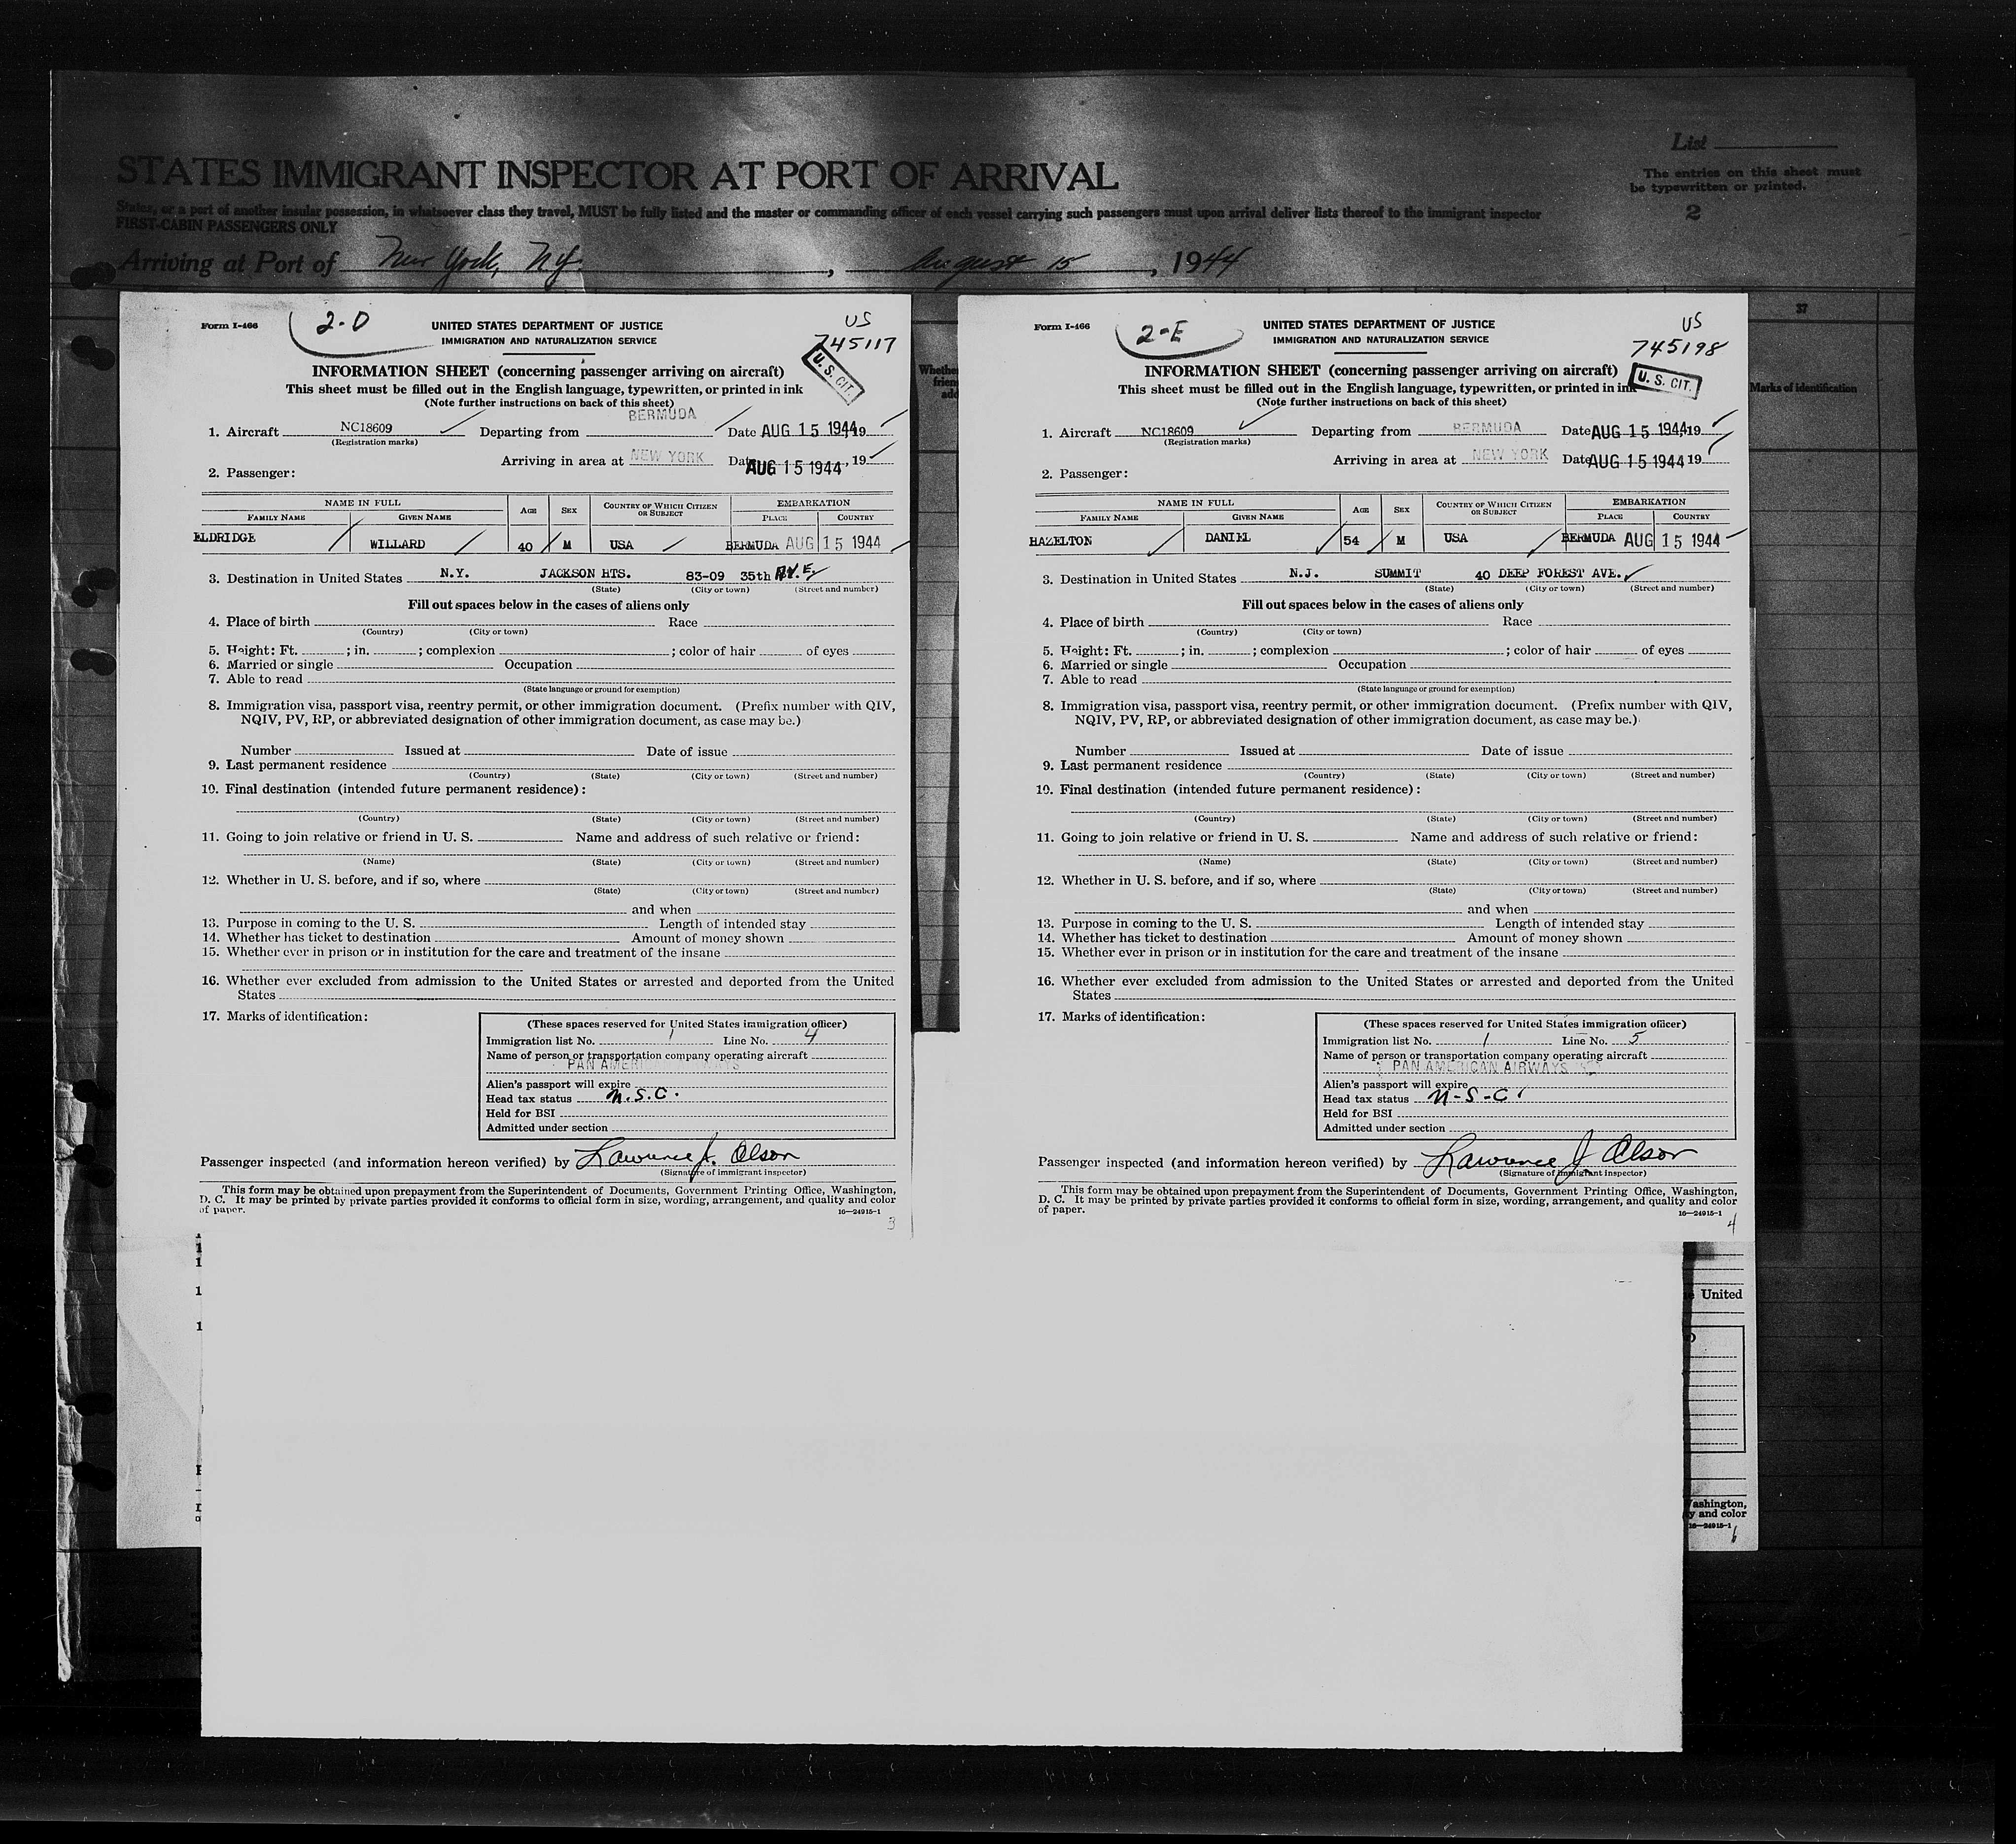 List
STATES IMMIGRANT INSPECTOR AT PORT OF ARRIVAL
The entries on this sheet must
be typewritten or printed.
States, or a port of another insular possession, in whatsoever class they travel, MUST be fully listed and the master or commanding officer of each vessel carrying such passengers must upon arrival deliver lists thereof to the immigrant inspector
2
FIRST-CABIN PASSENGERS ONLY
Arriving at Port of New York, N.Y. , August 15 , 1944
Form I-466
2-D
UNITED STATES DEPARTMENT OF JUSTICE
IMMIGRATION AND NATURALIZATION SERVICE
US
745117
U. S. CIT.
INFORMATION SHEET (concerning passenger arriving on aircraft)
This sheet must be filled out in the English language, typewritten, or printed in ink
(Note further instructions on back of this sheet)
1. Aircraft NC18609 Departing from BERMUDA Date AUG 15 1944 19
(Registration marks)
Arriving in area at NEW YORK Date AUG 15 1944, 19
2. Passenger:
NAME IN FULL
FAMILY NAME GIVEN NAME AGE SEX COUNTRY OF WHICH CITIZEN OR SUBJECT EMBARKATION
PLACE COUNTRY
ELDRIDGE WILLARD 40 M USA BERMUDA AUG 15 1944
3. Destination in United States N.Y. JACKSON HTS. 83-09 35th AVE.
(State) (City or town) (Street and number)
Fill out spaces below in the cases of aliens only
4. Place of birth Race
(Country) (City or town)
5. Height: Ft. ; in. ; complexion ; color of hair of eyes
6. Married or single Occupation
7. Able to read
(State language or ground for exemption)
8. Immigration visa, passport visa, reentry permit, or other immigration document. (Prefix number with QIV,
NQIV, PV, RP, or abbreviated designation of other immigration document, as case may be.)
Number Issued at Date of issue
9. Last permanent residence
(Country) (State) (City or town) (Street and number)
10. Final destination (intended future permanent residence):
(Country) (State) (City or town) (Street and number)
11. Going to join relative or friend in U. S. Name and address of such relative or friend:
(Name) (State) (City or town) (Street and number)
12. Whether in U. S. before, and if so, where
(State) (City or town) (Street and number)
and when
13. Purpose in coming to the U. S. Length of intended stay
14. Whether has ticket to destination Amount of money shown
15. Whether ever in prison or in institution for the care and treatment of the insane
16. Whether ever excluded from admission to the United States or arrested and deported from the United
States
17. Marks of identification:
(These spaces reserved for United States immigration officer)
Immigration list No. 1 Line No. 4
Name of person or transportation company operating aircraft
PAN AMERICAN AIRWAYS
Alien's passport will expire
Head tax status N.S.C.
Held for BSI
Admitted under section
Passenger inspected (and information hereon verified) by Lawrence J. Olson
(Signature of immigrant inspector)
This form may be obtained upon prepayment from the Superintendent of Documents, Government Printing Office, Washington,
D. C. It may be printed by private parties provided it conforms to official form in size, wording, arrangement, and quality and color
of paper.
16—24915-1
3
Whether
frien
add
Form I-466
2-E
UNITED STATES DEPARTMENT OF JUSTICE
IMMIGRATION AND NATURALIZATION SERVICE
US
745198
U. S. CIT.
INFORMATION SHEET (concerning passenger arriving on aircraft)
This sheet must be filled out in the English language, typewritten, or printed in ink
(Note further instructions on back of this sheet)
1. Aircraft NC18609 Departing from BERMUDA Date AUG 15 1944 19
(Registration marks)
Arriving in area at NEW YORK Date AUG 15 1944 19
2. Passenger:
NAME IN FULL
FAMILY NAME GIVEN NAME AGE SEX COUNTRY OF WHICH CITIZEN OR SUBJECT EMBARKATION
PLACE COUNTRY
HAZELTON DANIEL 54 M USA BERMUDA AUG 15 1944
3. Destination in United States N.J. SUMMIT 40 DEEP FOREST AVE.
(State) (City or town) (Street and number)
Fill out spaces below in the cases of aliens only
4. Place of birth Race
(Country) (City or town)
5. Height: Ft. ; in. ; complexion ; color of hair of eyes
6. Married or single Occupation
7. Able to read
(State language or ground for exemption)
8. Immigration visa, passport visa, reentry permit, or other immigration document. (Prefix number with QIV,
NQIV, PV, RP, or abbreviated designation of other immigration document, as case may be.)
Number Issued at Date of issue
9. Last permanent residence
(Country) (State) (City or town) (Street and number)
10. Final destination (intended future permanent residence):
(Country) (State) (City or town) (Street and number)
11. Going to join relative or friend in U. S. Name and address of such relative or friend:
(Name) (State) (City or town) (Street and number)
12. Whether in U. S. before, and if so, where
(State) (City or town) (Street and number)
and when
13. Purpose in coming to the U. S. Length of intended stay
14. Whether has ticket to destination Amount of money shown
15. Whether ever in prison or in institution for the care and treatment of the insane
16. Whether ever excluded from admission to the United States or arrested and deported from the United
States
17. Marks of identification:
(These spaces reserved for United States immigration officer)
Immigration list No. 1 Line No. 5
Name of person or transportation company operating aircraft
PAN AMERICAN AIRWAYS
Alien's passport will expire
Head tax status N-S-C
Held for BSI
Admitted under section
Passenger inspected (and information hereon verified) by Lawrence J Olson
(Signature of immigrant inspector)
This form may be obtained upon prepayment from the Superintendent of Documents, Government Printing Office, Washington,
D. C. It may be printed by private parties provided it conforms to official form in size, wording, arrangement, and quality and color
of paper.
16—24915-1
4
37
Marks of identification
United
ashington,
y and color
16—24915-1
6